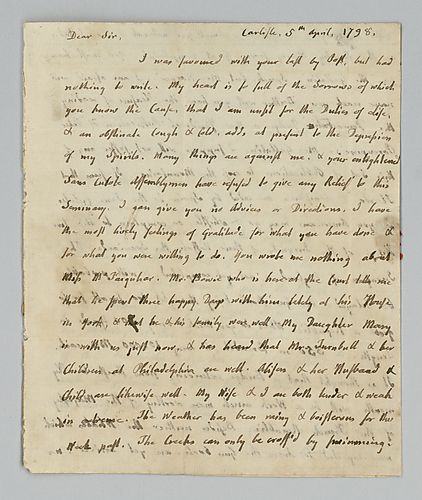 Dear Sir, Carlisle, 5th April, 1798.
I was favoured with your last by Post, but had
nothing to write. My heart is so full of the Sorrows of which
you know the Cause, that I am unfit for the Duties of Life,
& an obstinate Cough & Cold, adds at present to the Depression
of my Spirits. Many things are against me. & your enlightened
Sans Culote Assemblymen have refused to give any Relief to this
Seminary. I can give you no Advices or Directions. I have
the most lively feelings of Gratitude for what you have done &
for what you were willing to do. You wrote me nothing about
Miss M Farquhar. Mr. Bowie who is here at the Court tells me
that he spent three happy Days with him lately at his House
in York, & that he & his family were well. My Daughter Mary
is with us just now, & has heard that Mrs. Turnbull & her
Children at Philadelphia are well. & her Husband &
Child are likewise well. My Wife & I are both tender & weak
in extreme. The Weather has been rainy & boisterous for this
Week past. The Creeks can only be crossed by swimming.